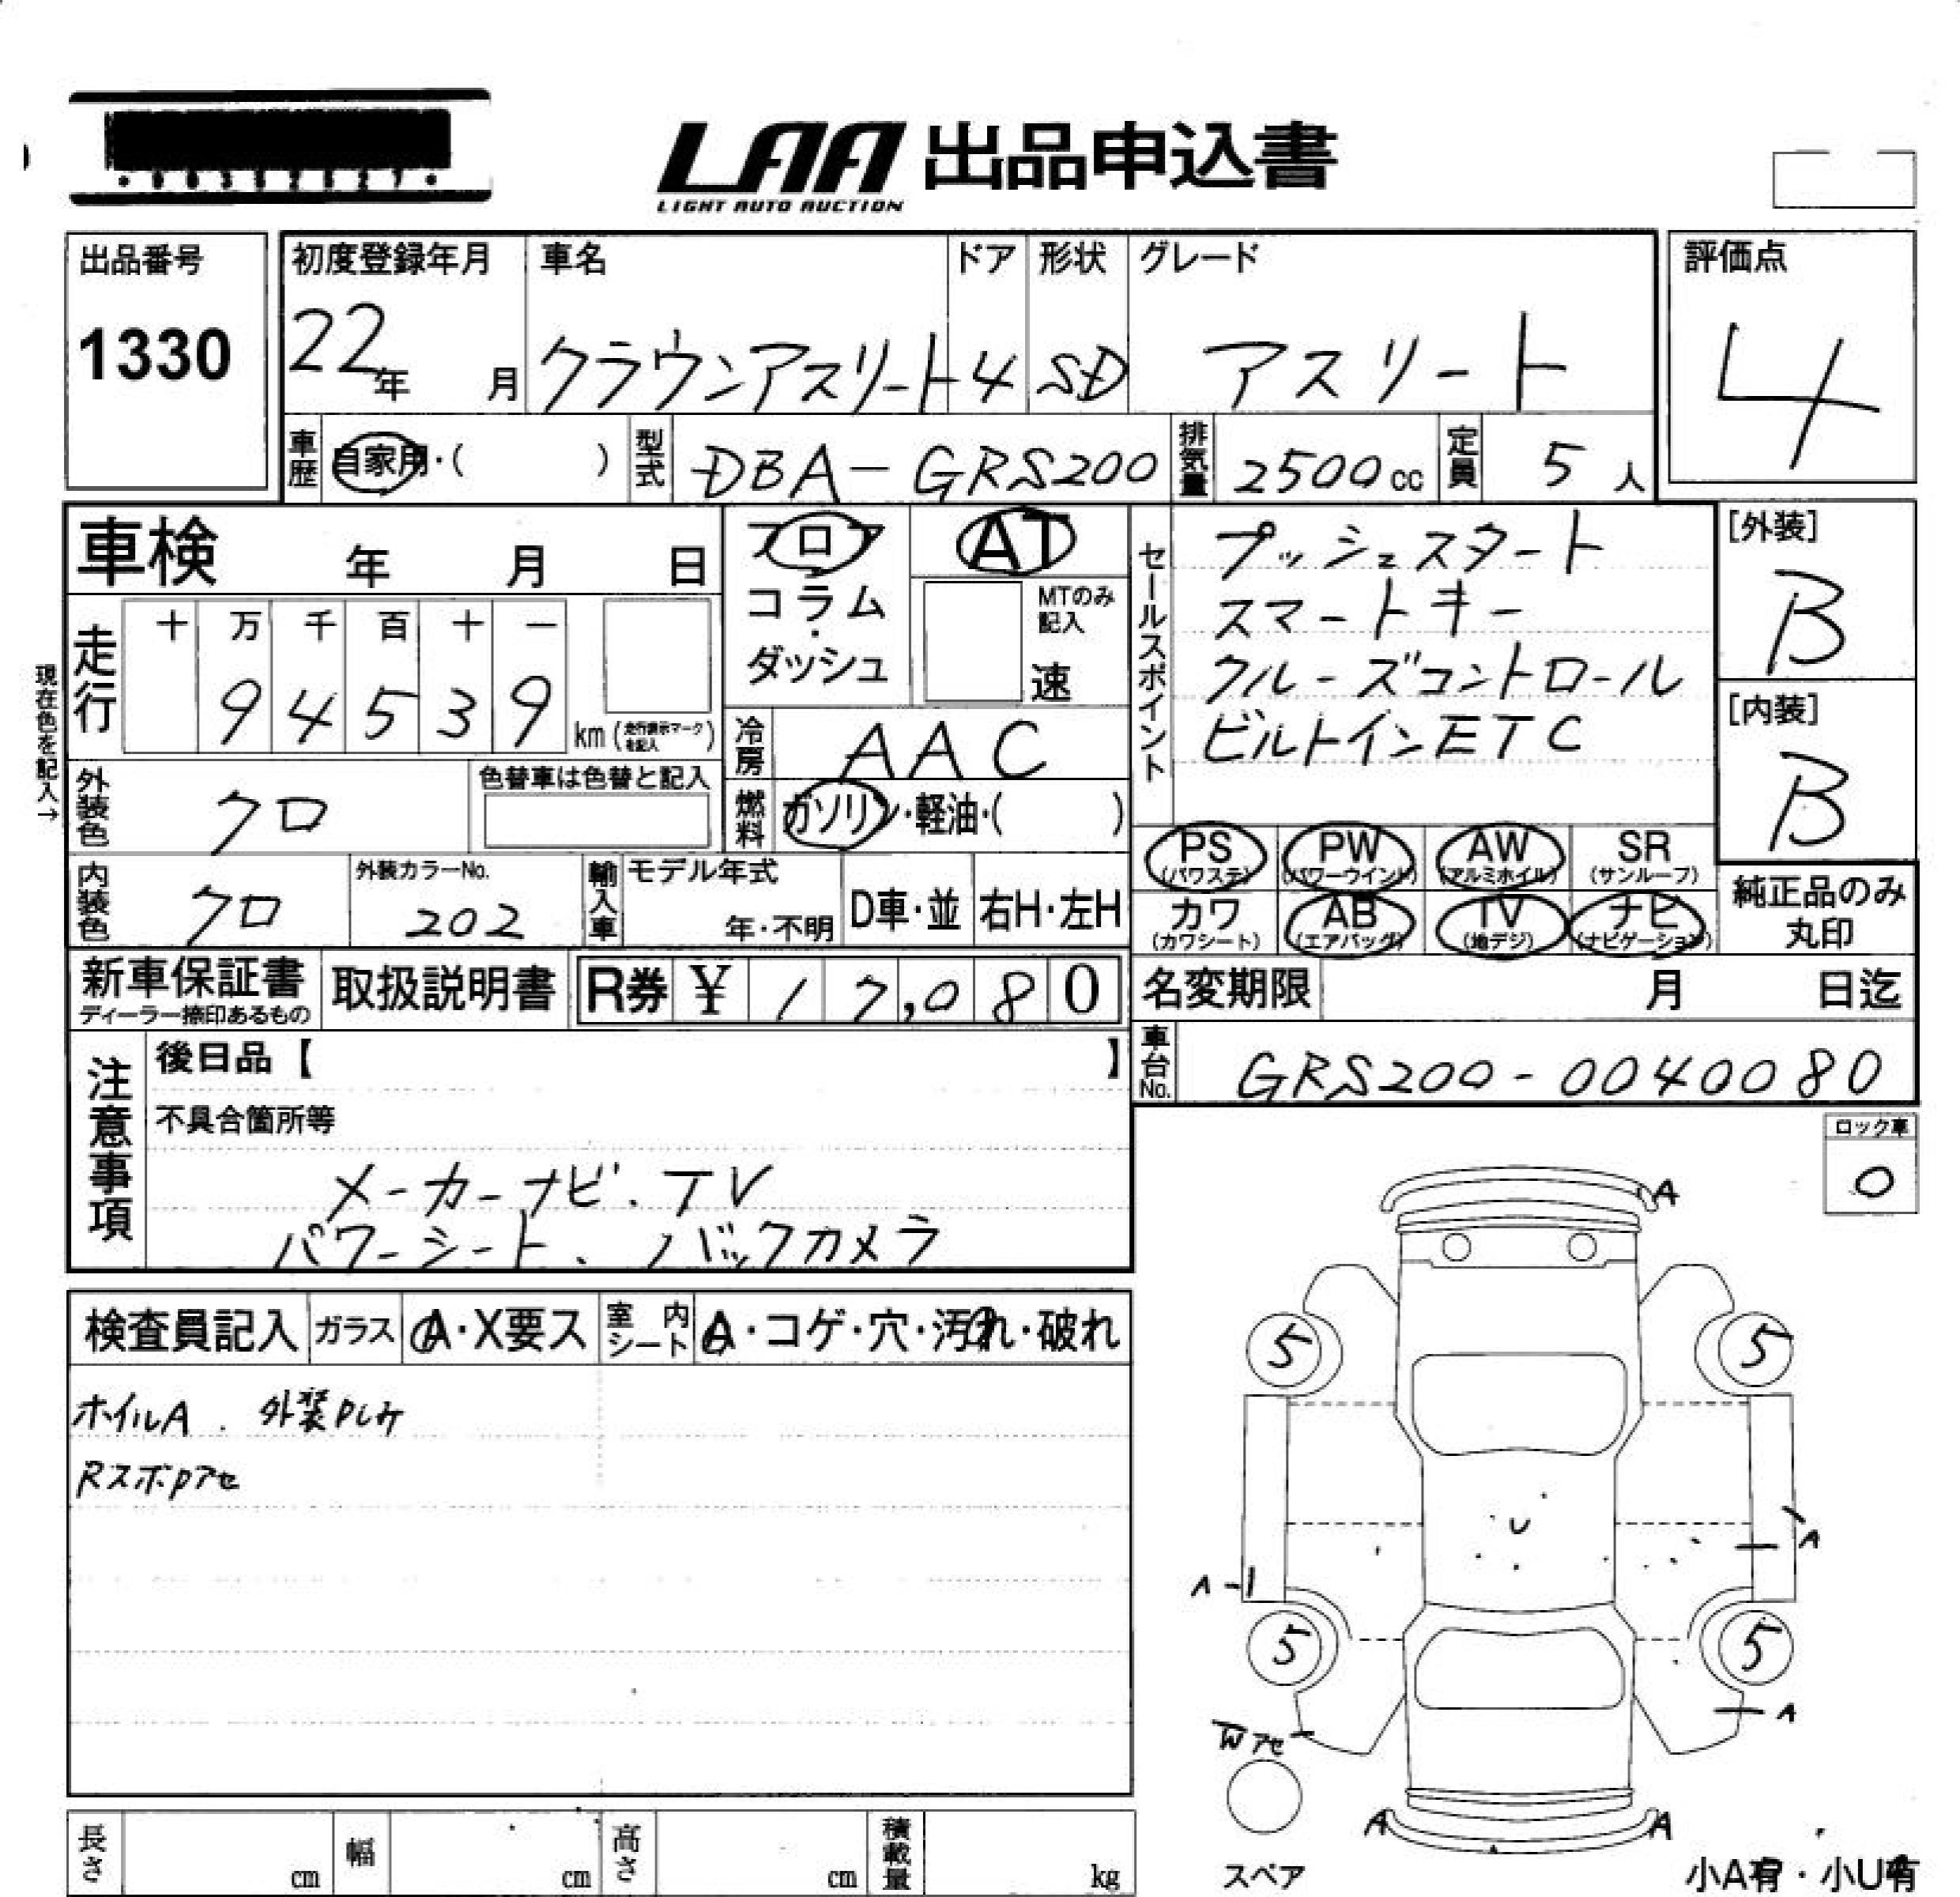 LAA 出品申込書
LIGHT AUTO AUCTION
出品番号
1330
初度登録年月
22年 月
車名
クラウンアスリート
ドア
4
形状
SD
グレード
アスリート
評価点
4
車歴
自家用・( )
型式
DBA-GRS200
排気量
2500cc
定員
5人
車検 年 月 日
フロア
・
コラム
・
ダッシュ
AT
MTのみ
記入
速
セールスポイント
プッシュスタート
スマートキー
クルーズコントロール
ビルトインETC
[外装]
B
[内装]
B
現在色を記入→
走行
十 万 千 百 十 一
9 4 5 3 9
km (走行表示マークを記入)
冷房
AAC
外装色
クロ
色替車は色替と記入
燃料
ガソリン・軽油・( )
PS
(パワステ)
PW
(パワーウインド)
AW
(アルミホイル)
SR
(サンルーフ)
カワ
(カワシート)
AB
(エアバッグ)
TV
(地デジ)
ナビ
(ナビゲーション)
純正品のみ
丸印
内装色
クロ
外装カラーNo.
202
輸入車
モデル年式
年・不明
D車・並
右H・左H
新車保証書
ディーラー捺印あるもの
取扱説明書
R券 ¥ 17,080
名変期限 月 日迄
車台No.
GRS200-0040080
注意事項
後日品【 】
不具合箇所等
メーカーナビ.TV
パワーシート.バックカメラ
ロック車
0
検査員記入
ガラス
A・X要ス
室内
シート
A・コゲ・穴・汚れ・破れ
ホイルA. 外装
A
5
5
U
A
A
5
5
A
Wアセ
A
A
スペア
小A有・小U有
長さ cm
幅 cm
高さ cm
積載量 kg